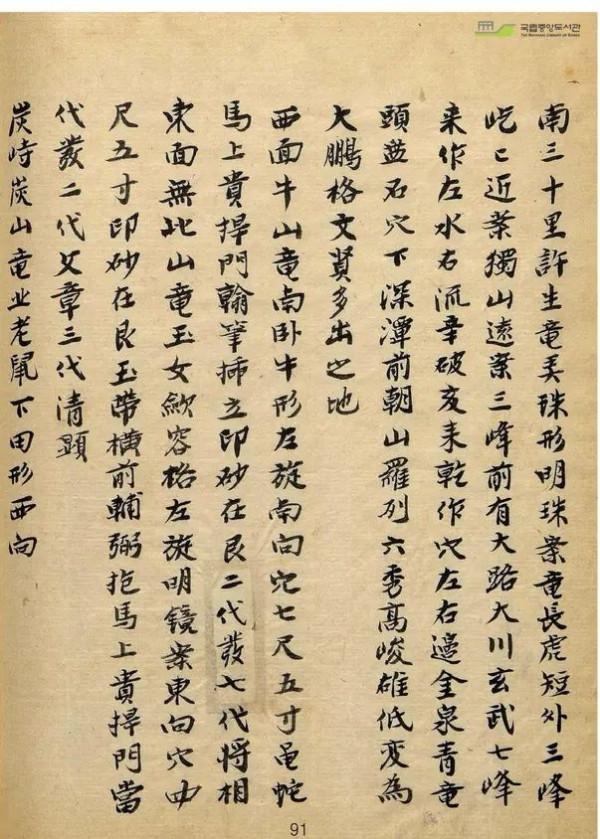 국립중앙도서관
THE NATIONAL LIBRARY OF KOREA
南三十里許生竜美珠形明珠案竜長虎短外三峰
屹〻近案獨山遠案三峰前有大路大川玄武七峰
来作左水右流辛破亥耒乾作穴左右邊金泉青竜
頭盤石穴下深潭前朝山羅列六秀高峻雄低変為
大鵬格文賢多出之地
西面牛山竜南卧牛形左旋南向穴七尺五寸黽蛇
馬上貴捍門翰筆揷立印砂在艮二代發七代将相
東面無此山竜玉女斂容格左旋明镜案東向穴四
尺五寸印砂在艮玉帯横前輔弼抱馬上貴捍門當
代發二代文章三代清顕
炭峙炭山竜业老鼠下田形西向
91